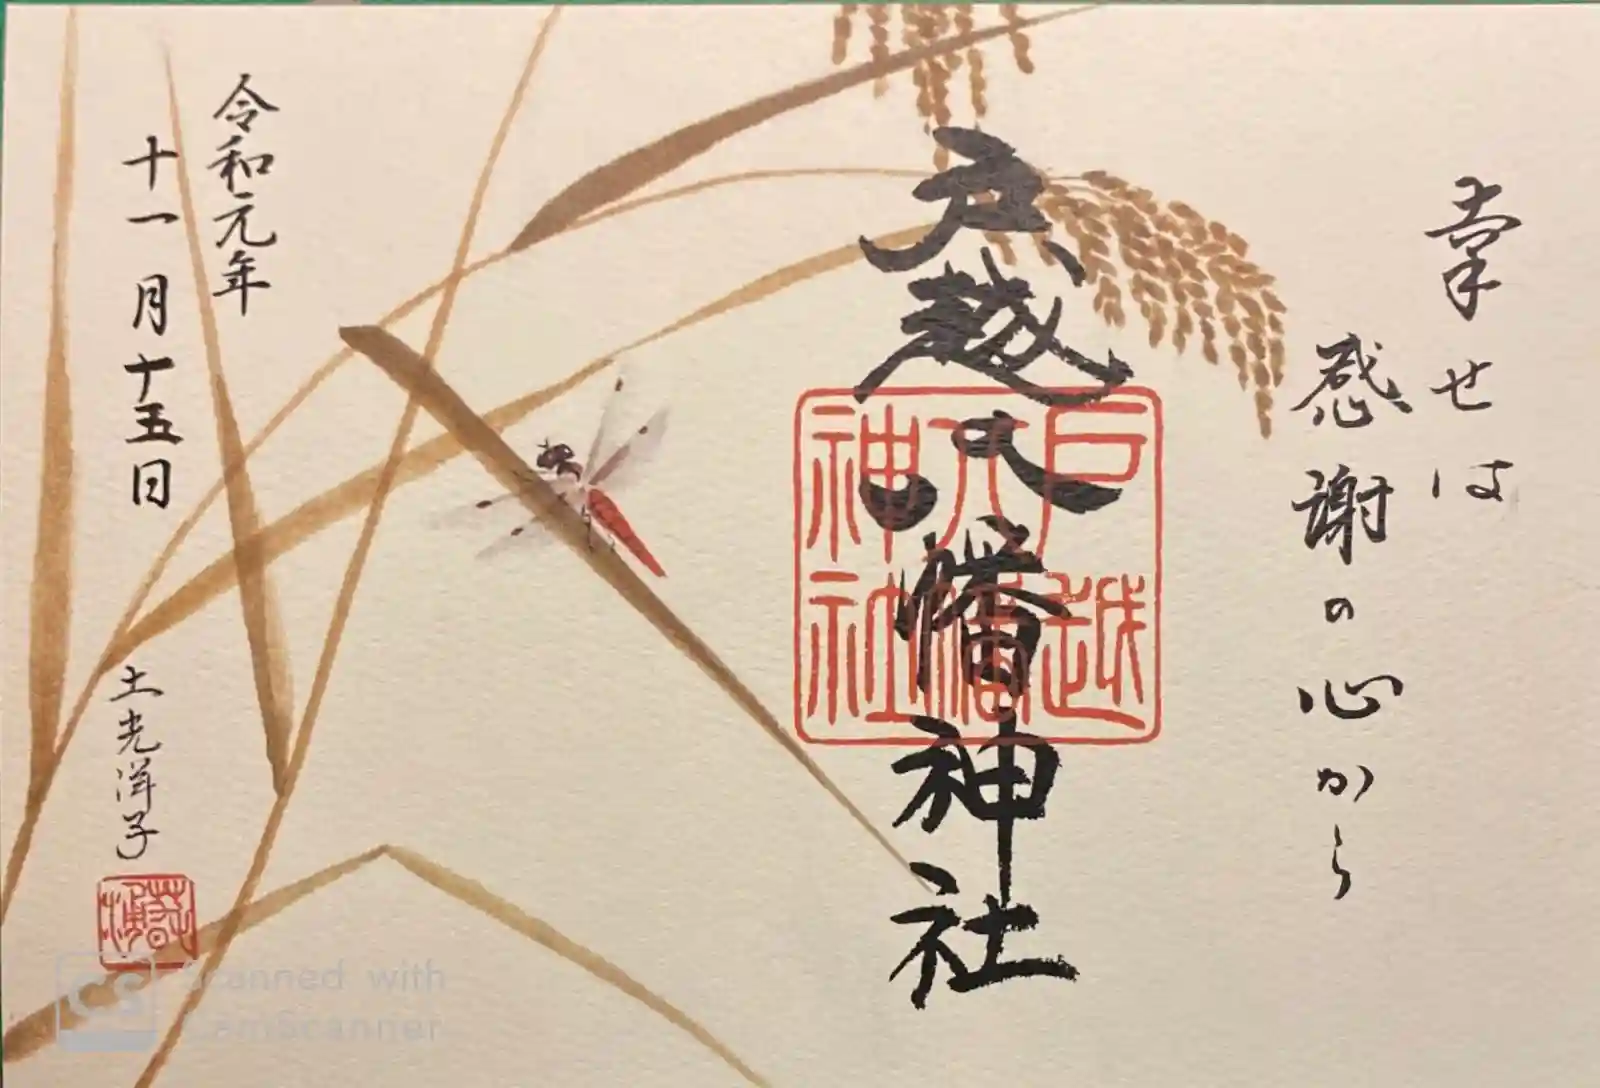 幸せは
感謝の心から
戸越八幡神社
戸越
八幡
神社
令和元年
十一月十五日
土光洋子
CS Scanned with
CamScanner